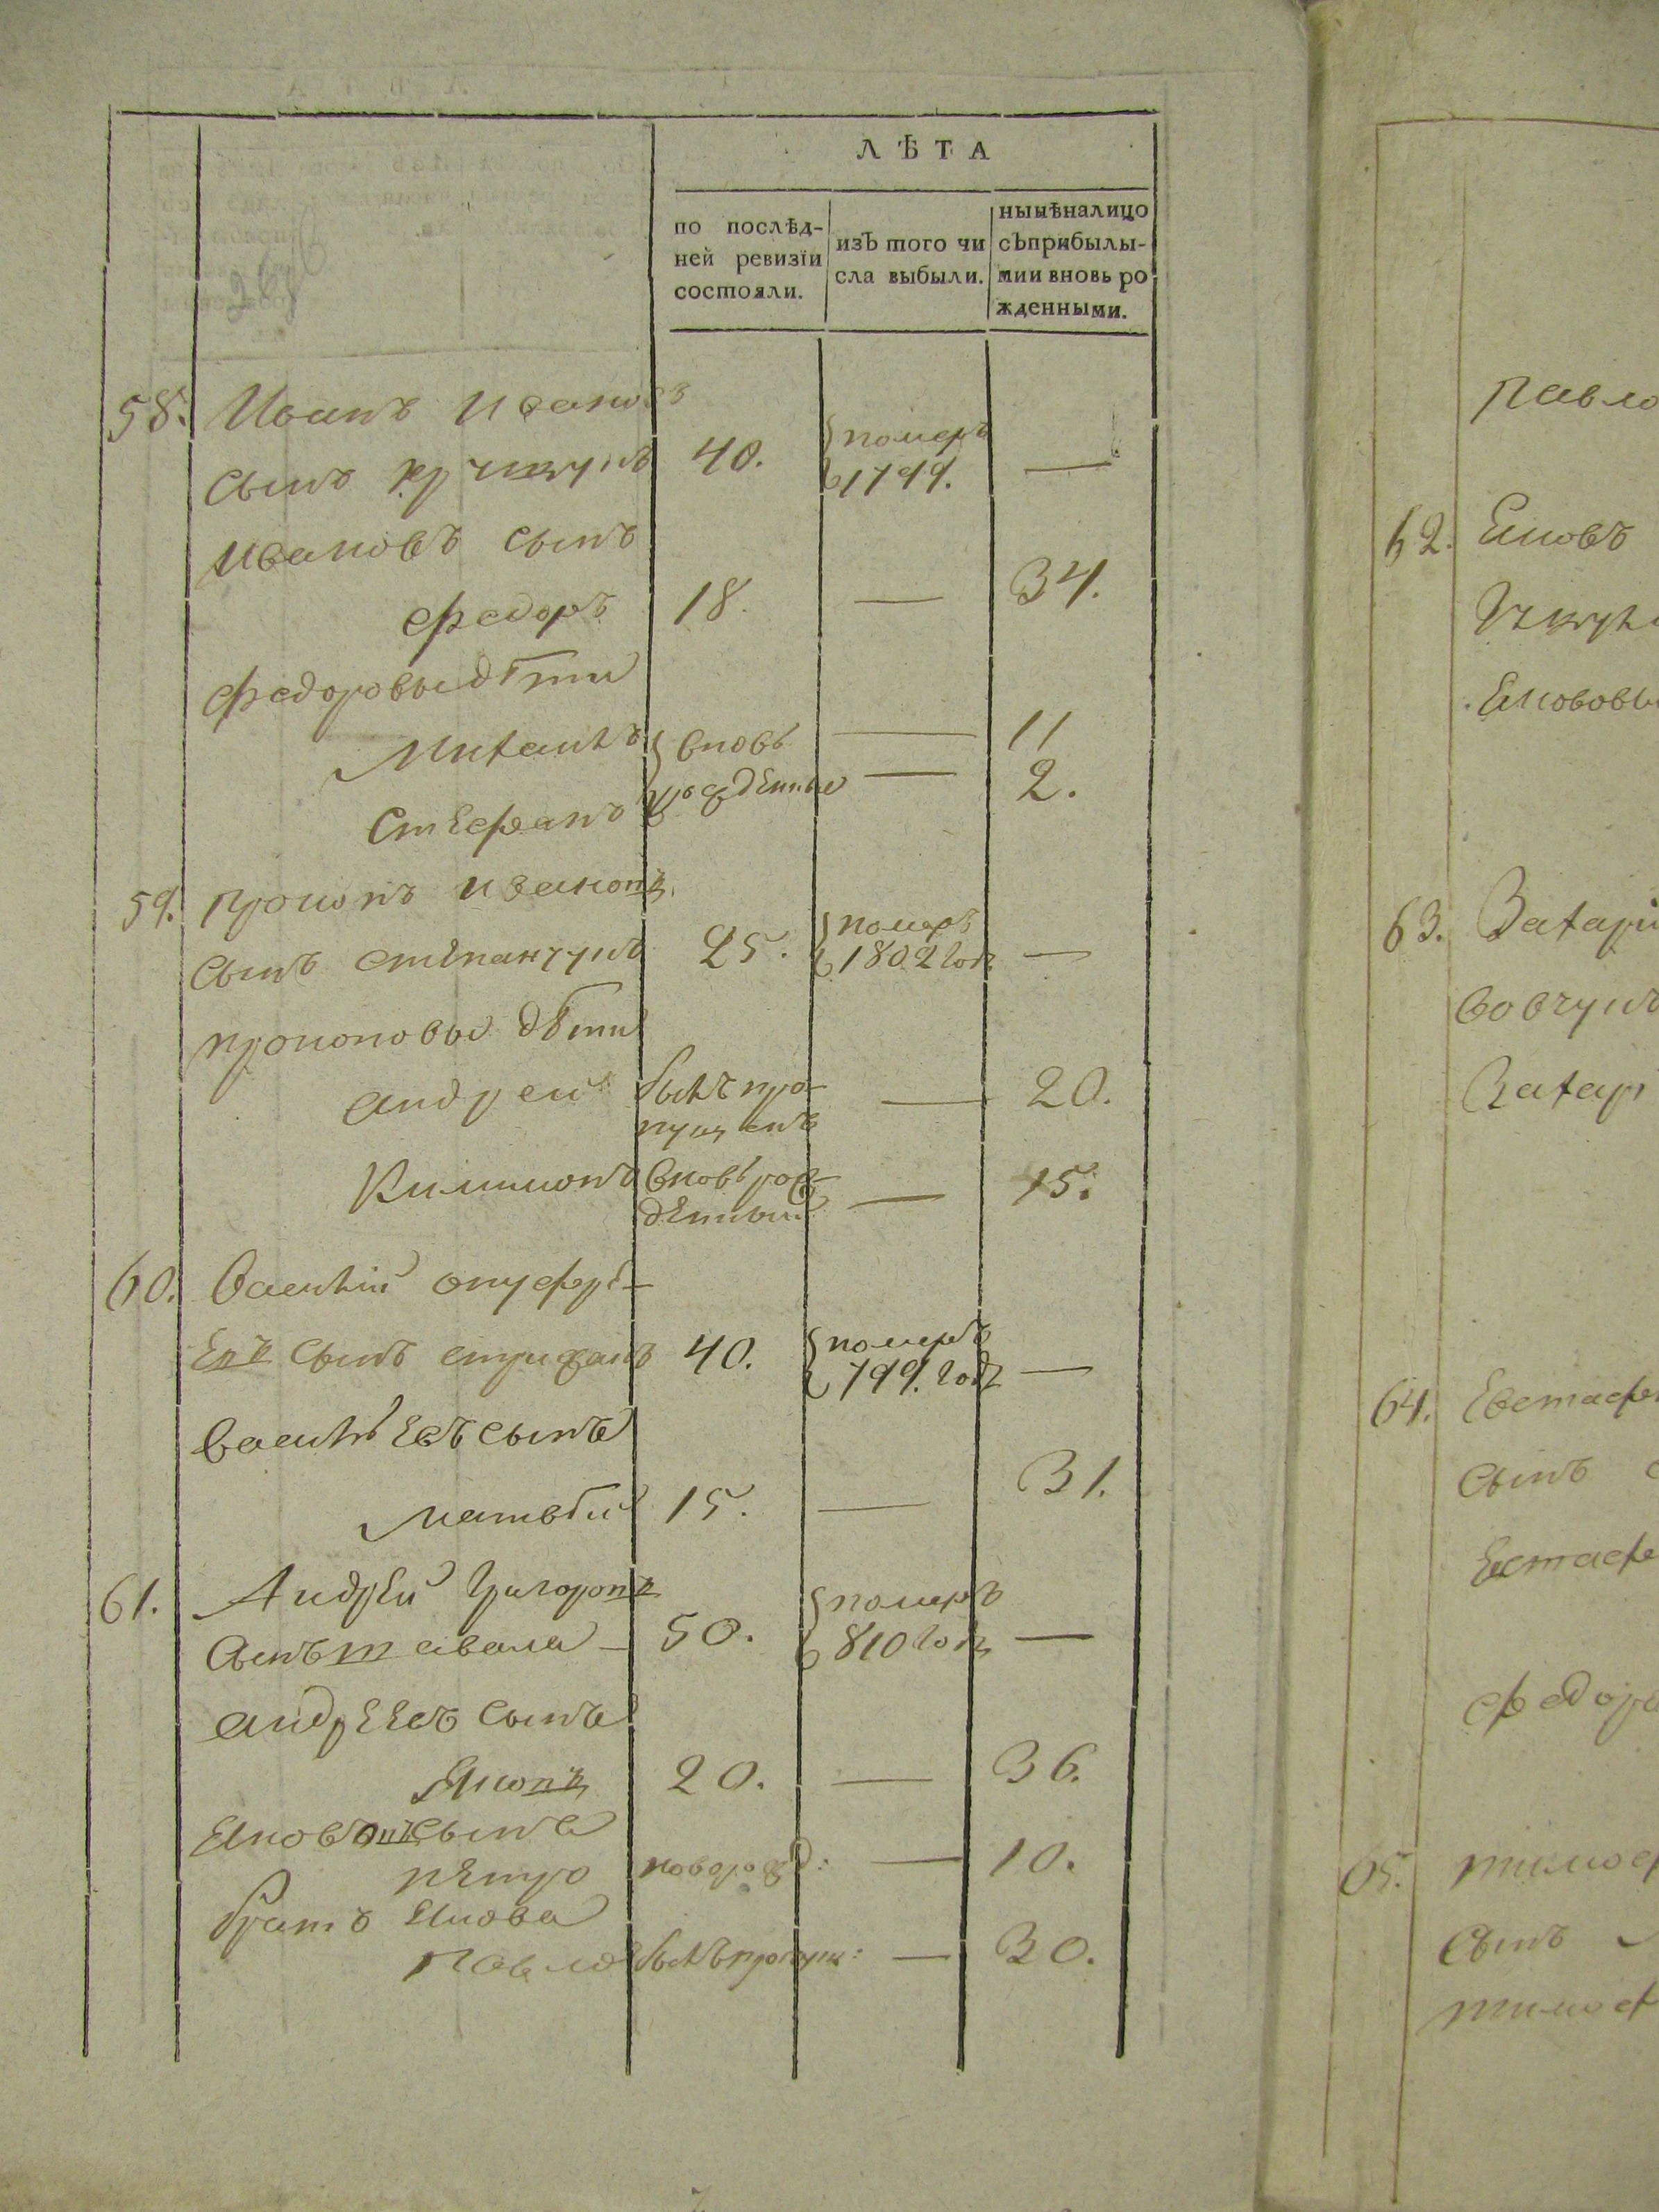 ЛѢТА
по послѣд-
ней ревизїи
состояли.
изъ того чи
сла выбыли.
нынѣ налицо
съ прибылы-
ми и вновь ро
жденными.
58. Иванъ Ивановъ
сынъ 40. померъ
1799. —
Ивановъ сынъ
Федоръ 18. — 34.
Федоровы дѣти
Михаилъ вновь — 11
Стефанъ рожденные — 2.
59. Прокопъ Ивановъ
сынъ Степанчукъ 25. померъ
1802 годъ —
Прокоповы дѣти
Андрей былъ про-
пущенъ — 20.
вновь рож-
денный — 15.
60. Василій Онуфрі-
евъ сынъ 40. померъ
799. годъ —
Васильевъ сынъ
Матвѣй 15. — 31.
61. Андрей Григоровъ
сынъ 50. померъ
810 годъ —
Андреевъ сынъ
Яковъ 20. — 36.
сынъ
Петро новорожд: — 10.
братъ Якова
Павло былъ пропущ: — 30.
Павло
62. Яковъ
63. Захарі
Вовчукъ
Захарі
64. Евстафі
сынъ
Евстафі
Федор
65. Тимоф
сынъ
Тимоф